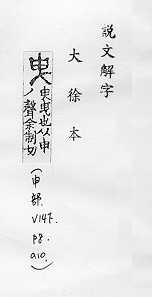 說文解字
大徐本
曳
臾曳也从申
丿聲余制切
(申部.
V14下.
P8.
a10.)